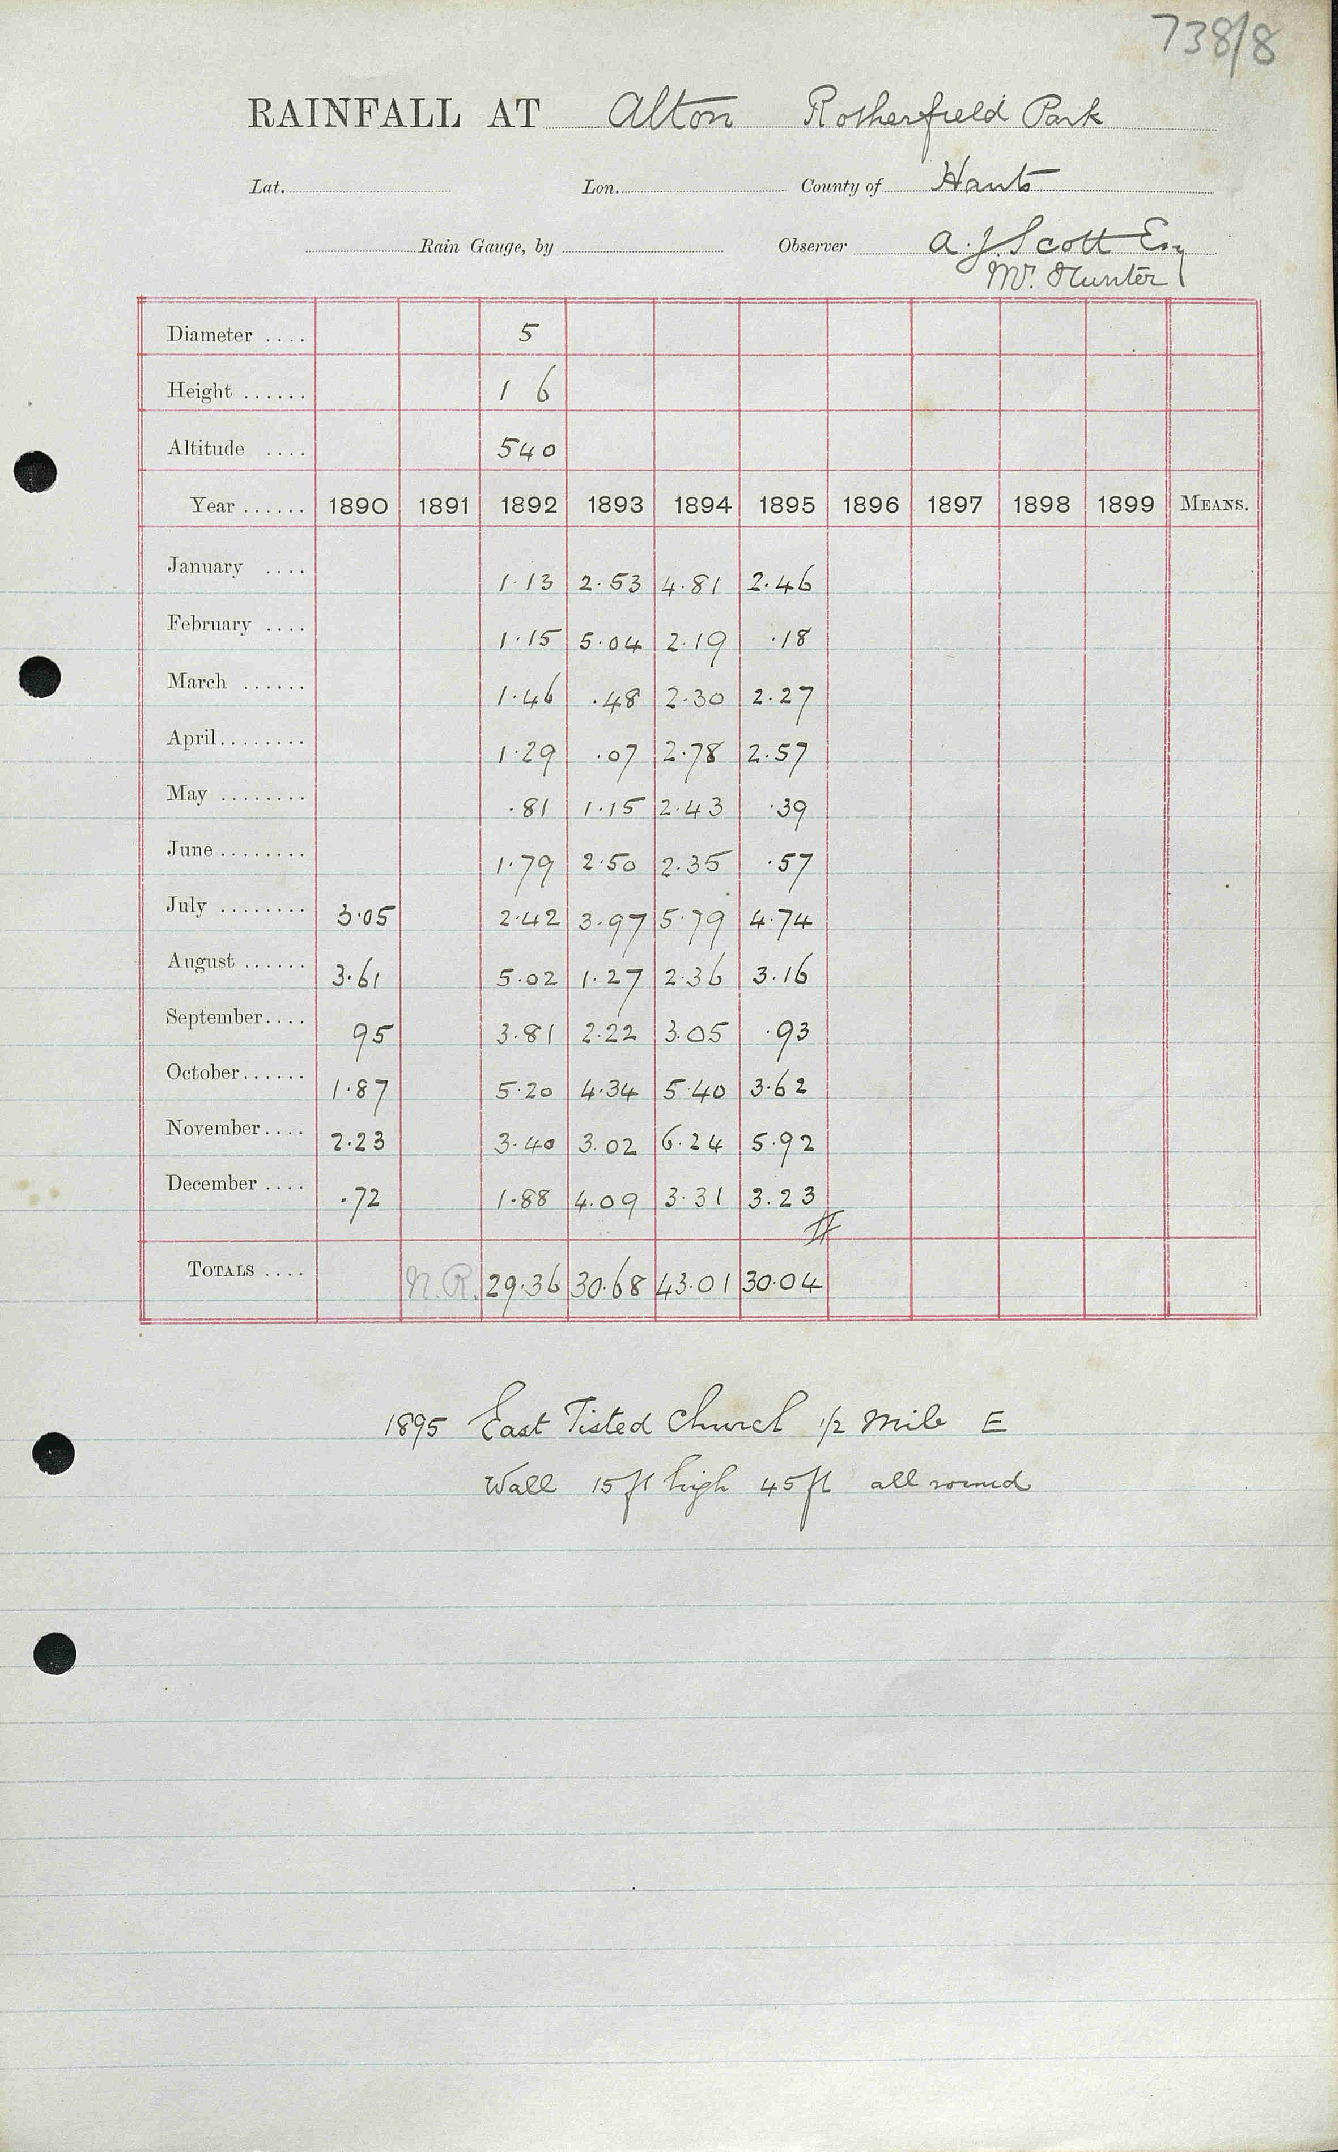 738/8
RAINFALL AT Alton Rotherfield Park
Lat. Lon. County of Hants
Rain Gauge, by Observer A. J. Scott Esq
Mr. Hunter
Diameter .... 5
Height ...... 1 6
Altitude .... 540
Year ...... 1890 1891 1892 1893 1894 1895 1896 1897 1898 1899 MEANS.
January .... 1.13 2.53 4.81 2.46
February .... 1.15 5.04 2.19 .18
March ...... 1.46 .48 2.30 2.27
April ........ 1.29 .07 2.78 2.57
May ........ .81 1.15 2.43 .39
June ........ 1.79 2.50 2.35 .57
July ........ 3.05 2.42 3.97 5.79 4.74
August ...... 3.61 5.02 1.27 2.36 3.16
September.... 95 3.81 2.22 3.05 .93
October...... 1.87 5.20 4.34 5.40 3.62
November.... 2.23 3.40 3.02 6.24 5.92
December .... .72 1.88 4.09 3.31 3.23
TOTALS .... N.R. 29.36 30.68 43.01 30.04
1895 East Tisted Church 1/2 Mile E
Wall 15 ft high 45 ft all round